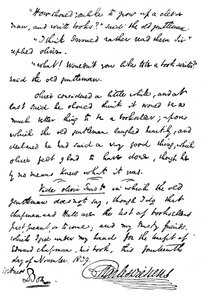 "How should you like to grow up a clever
man, and write books?" said the old gentleman.
"I think I would rather read them Sir"
replied oliver.
"What! Wouldn't you like to be a book-writer?"
said the old gentleman.
Oliver considered a little while, and at
last said he should think it would be a
much better thing to be a bookseller; upon
which the old gentleman laughed heartily, and
declared he had said a very good thing, which
oliver felt glad to have done, though he
by no means knew what it was.
Vide oliver Twist in which the old
gentleman does not say, though I do, that
Chapman and Hall are the best of booksellers
past present or to come; and my trusty friends
which I give under my hand for the benefit of
Edward Chapman, his book, this fourteenth
day of November 1839.
Charles Dickens
Witness
Boz